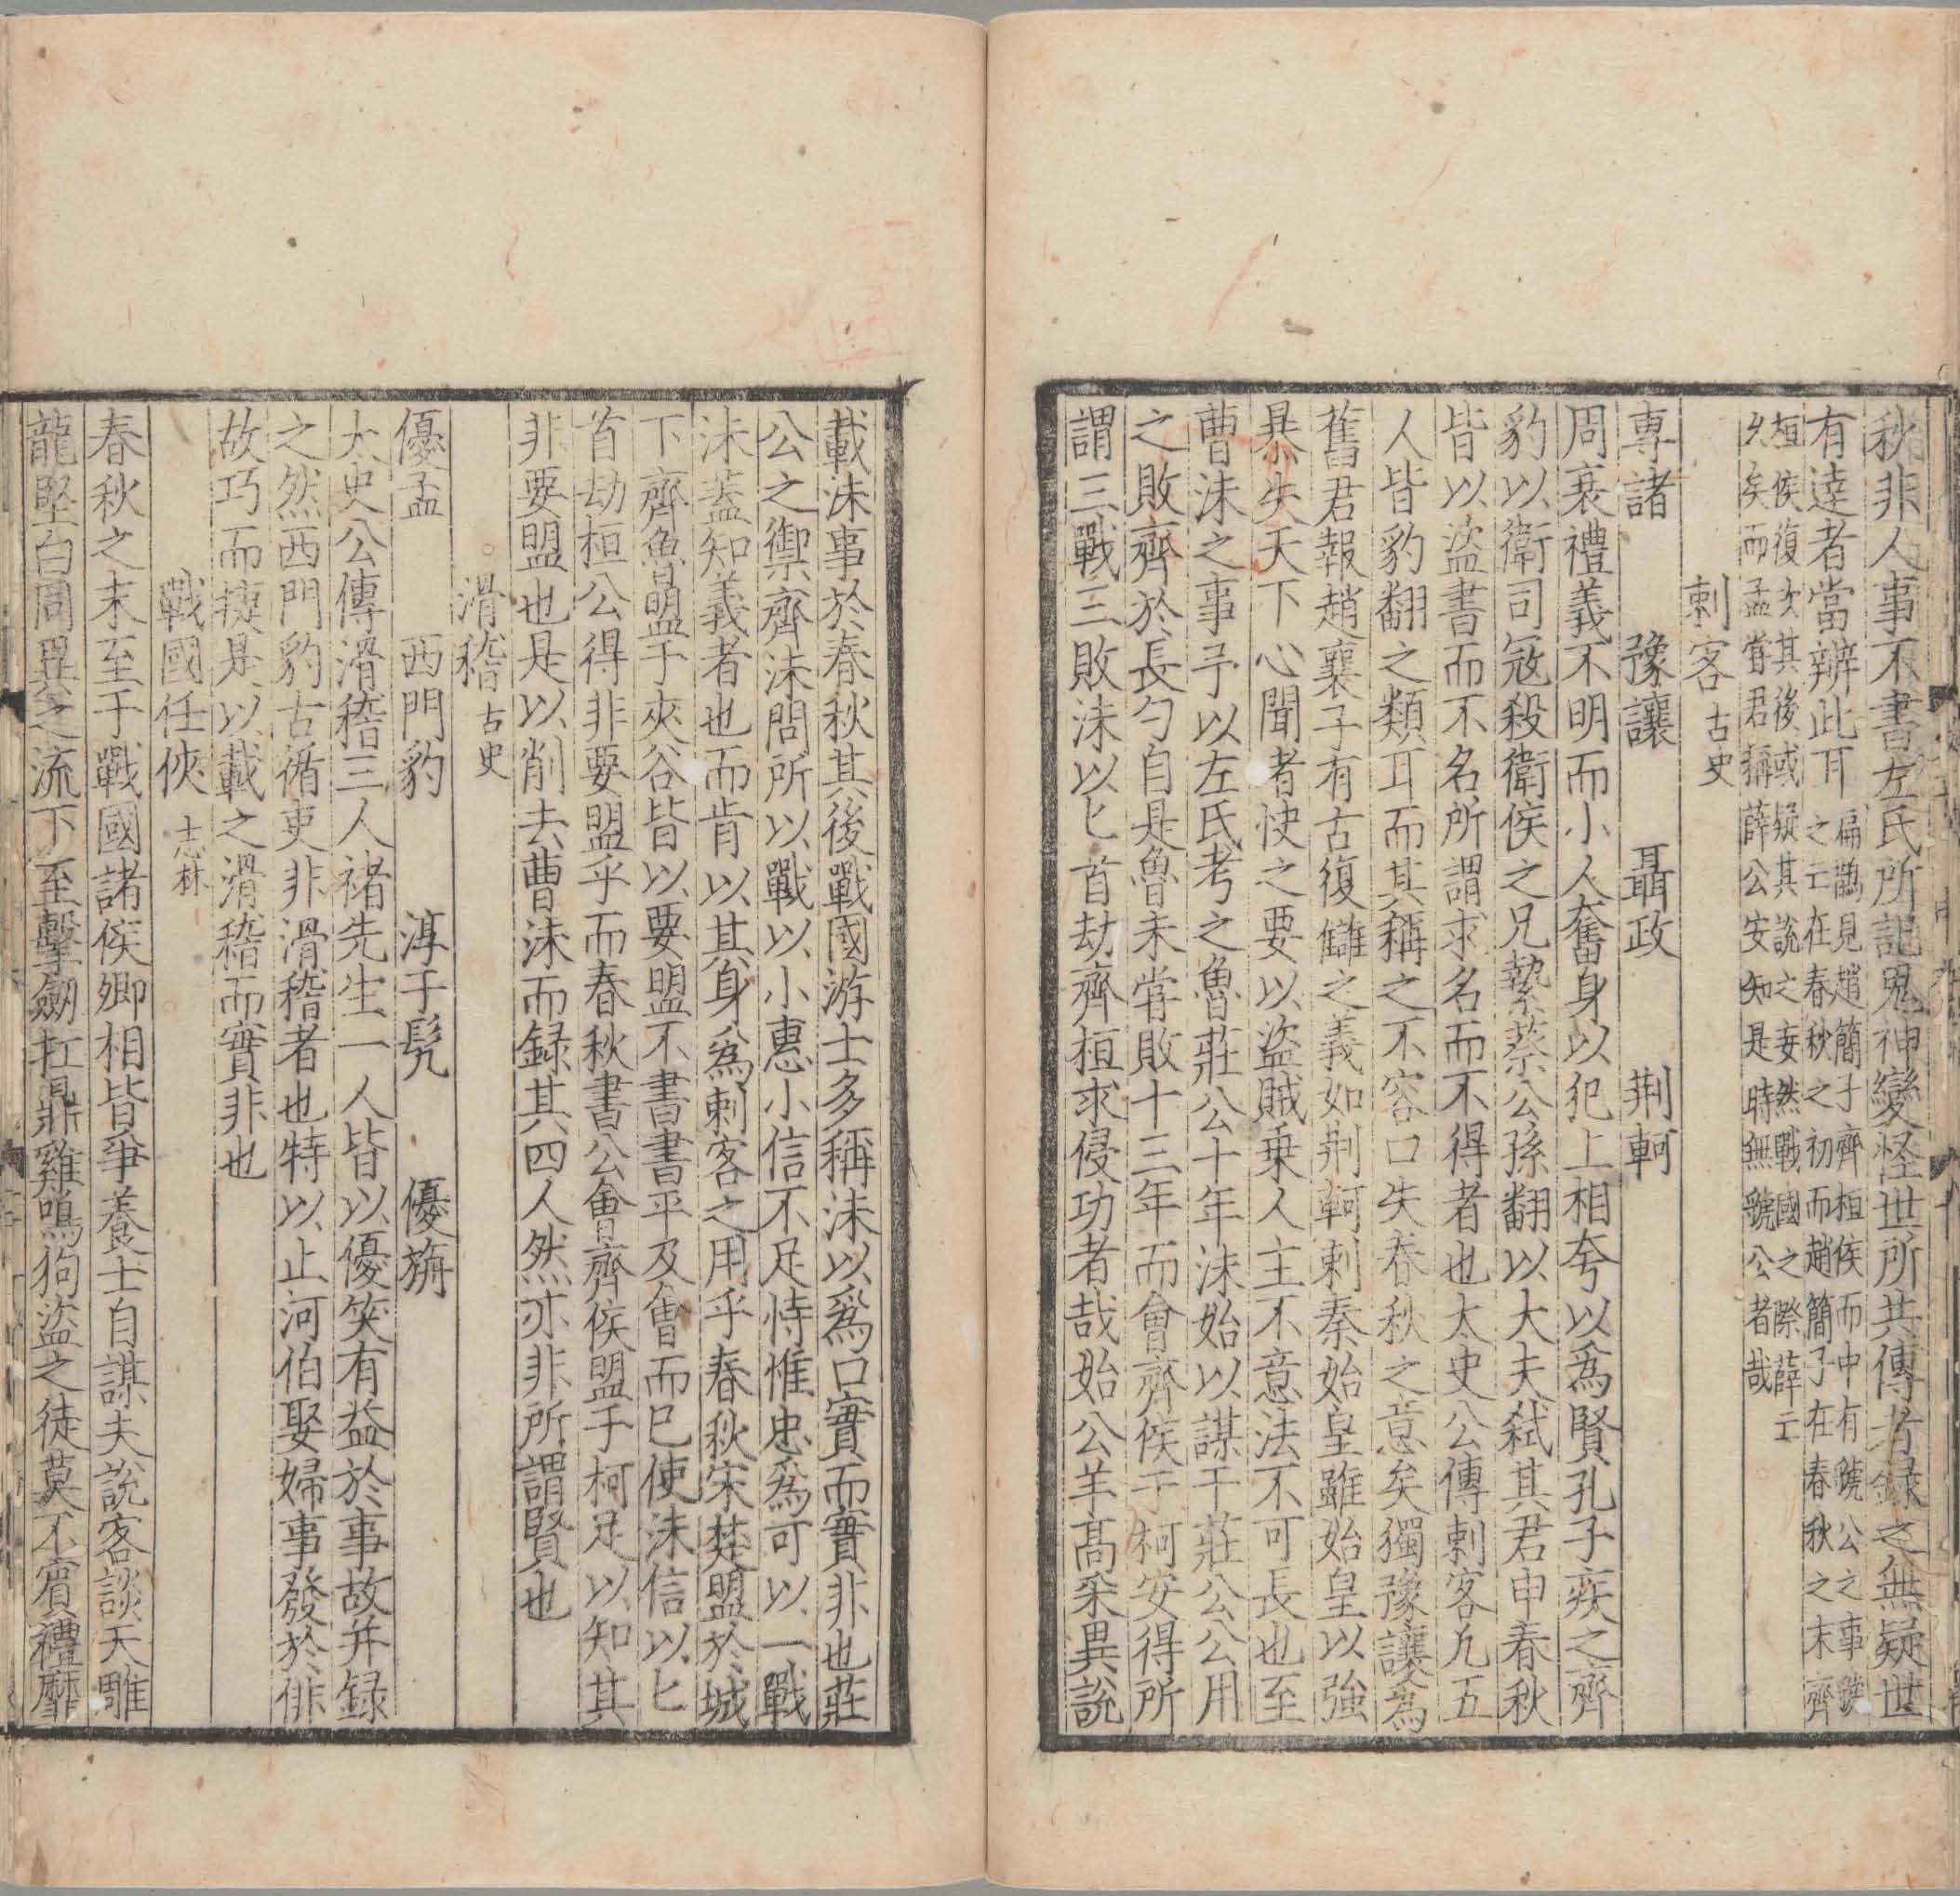 秋非人事不書左氏所記鬼神變怪世所共傳者錄之無疑世
有達者當辨此耳扁鵲見趙簡子齊桓侯而中有虢公之事虢
之亡在春秋之初而趙簡子在春秋之末齊
桓侯復次其後或疑其說之妄然戰國之際薛亡
久矣而孟嘗君稱薛公安知是時無虢公者哉
刺客古史
專諸 豫讓 聶政 荆軻
周衰禮義不明而小人奮身以犯上相夸以爲賢孔子疾之齊
豹以衛司寇殺衛侯之兄縶蔡公孫翻以大夫弒其君申春秋
皆以盜書而不名所謂求名而不得者也太史公傳刺客凡五
人皆豹翻之類耳而其稱之不容口失春秋之意矣獨豫讓爲
舊君報趙襄子有古復讎之義如荆軻刺秦始皇雖始皇以強
暴失天下心聞者快之要以盜賊乗人主不意法不可長也至
曹沬之事予以左氏考之魯莊公十年沬始以謀干莊公公用
之敗齊於長勺自是魯未甞敗十三年而會齊侯于柯安得所
謂三戰三敗沬以匕首劫齊桓求侵功者哉始公羊髙采異說
載沬事於春秋其後戰國游士多稱沬以爲口實而實非也莊
公之禦齊沬問所以戰以小惠小信不足恃惟忠爲可以一戰
沬蓋知義者也而肯以其身爲刺客之用乎春秋宋楚盟於城
下齊魯盟于夾谷皆以要盟不書書平及會而已使沬信以匕
首劫桓公得非要盟乎而春秋書公會齊侯盟于柯足以知其
非要盟也是以削去曹沬而録其四人然亦非所謂賢也
滑稽古史
優孟 西門豹 淳于髠 優旃
太史公傳滑稽三人褚先生一人皆以優笑有益於事故并録
之然西門豹古循吏非滑稽者也特以止河伯娶婦事發於俳
故巧而捷是以載之滑稽而實非也
戰國任俠志林
春秋之末至于戰國諸侯卿相皆爭養士自謀夫說客談天雕
龍堅白同異之流下至擊劒扛鼎雞鳴狗盜之徒莫不賓禮靡